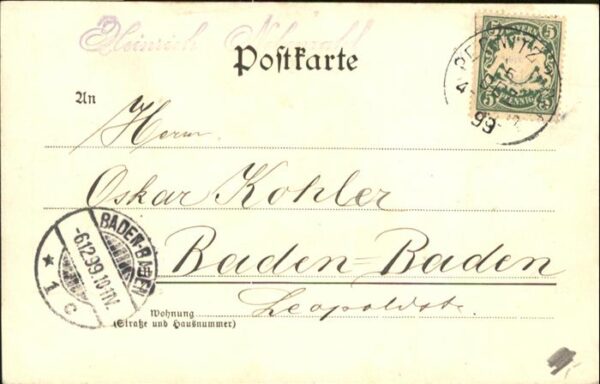 Heinrich
Postkarte
5 BAYERN 5
5 PFENNIG 5
99
An
Herrn
Oskar Kohler
BADEN-BADEN
-6.12.99.10-11V.
* 1 c
Baden-Baden
Leopoldstr.
Wohnung
(Straße und Hausnummer)